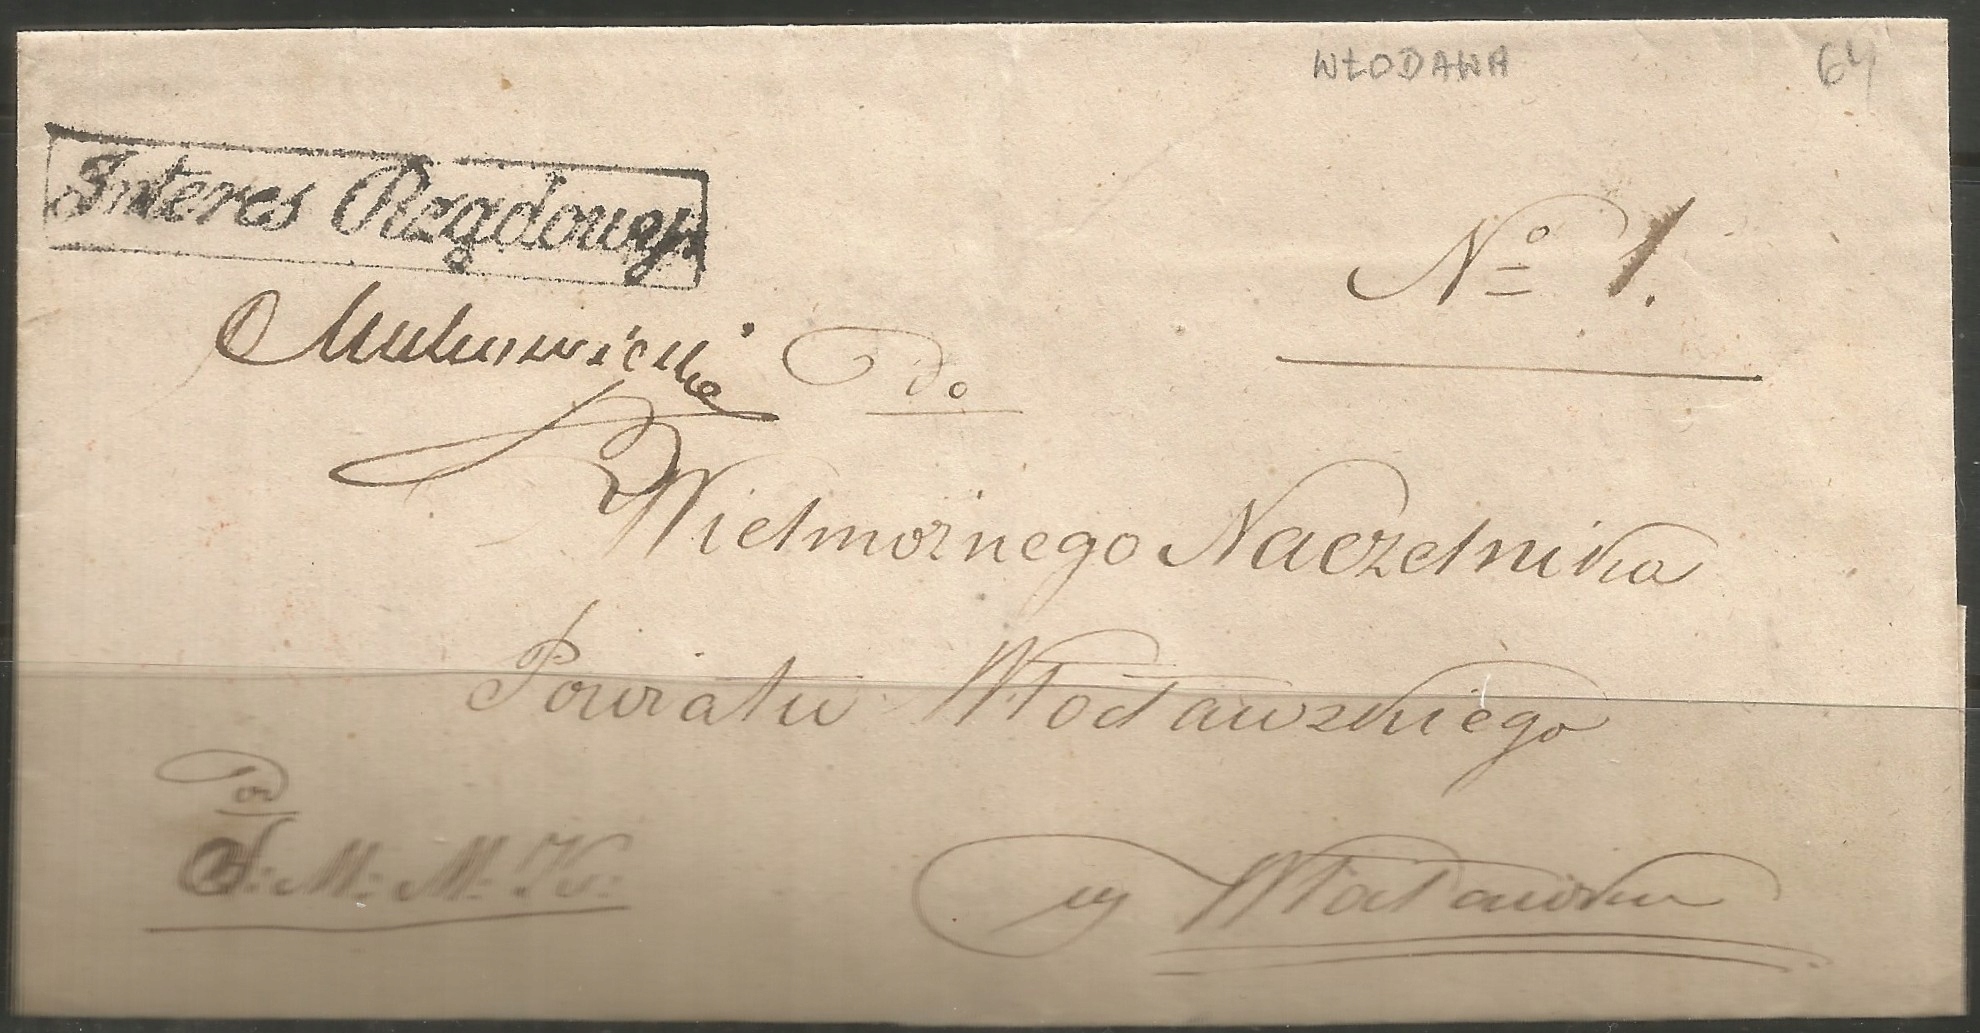 WŁODAWA 64
Interes Rządowy.
No 1.
do
Wielmożnego Naczelnika
Powiatu Włodawskiego
od
M: M:
w Włodawie